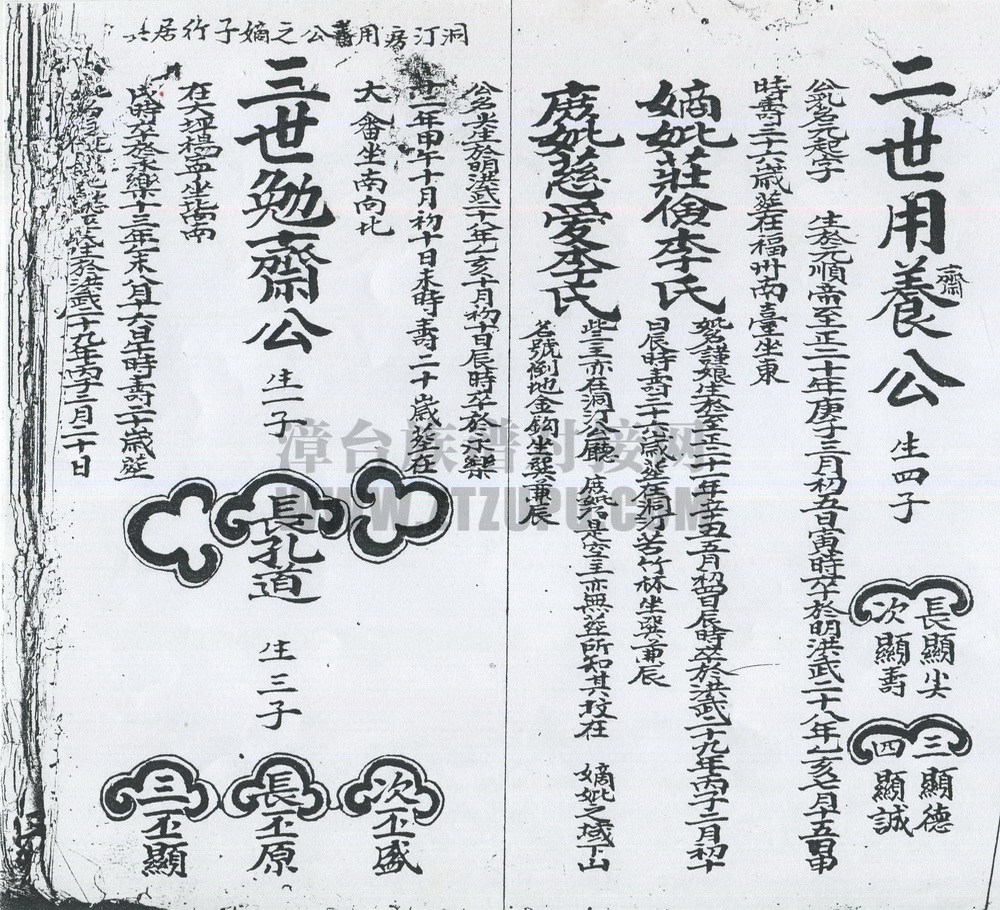 二世用養公 生四子
齋
長顯尖
次顯壽
三顯德
四顯誠
公乳名元起字 生於元順帝至正二十年庚子三月初五日寅時卒於明洪武二十八年乙亥七月十五日申
時壽三十六歲葬在福州南臺坐東
嫡妣莊儉李氏
妣名謹娘生於至正二十一年辛丑五月初日辰時卒於洪武二十九年丙子二月初十
日辰時壽三十六歲葬在洞汀苦竹林坐巽兼辰
庶妣慈愛李氏
些主亦在洞汀公廳 庶妣是空主亦無葬所知其坟在 嫡妣之域下山
名號倒地金鈎坐巽兼辰
洞汀房用 公之嫡子行居
公名 生於明洪武 年乙亥十月初十日辰時卒於永樂
十二年甲午十月初十日未時壽二十歲葬在
大畬坐南向北
三世勉齋公 生一子
長孔道
生三子
次丕盛
長丕原
三丕顯
生於洪武二十九年丙子三月二十日
戌時卒於永樂十三年乙未八月十六日午時壽二十歲葬
在大坪楊孟坐北向南
漳台族谱对接网
WWW.ZTZUPU.COM